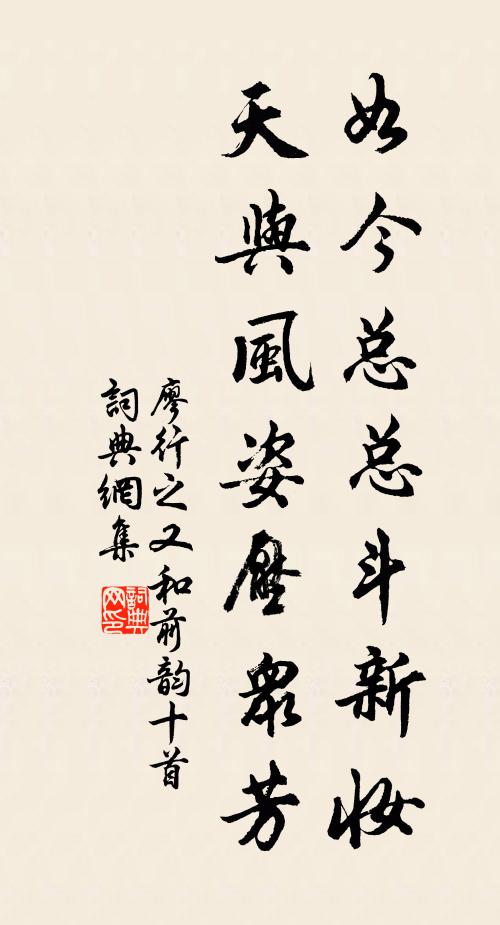 如今总总斗新妆
天與風姿壓眾芳
廖行之又和前韵十首
詞典網集
詞典网印